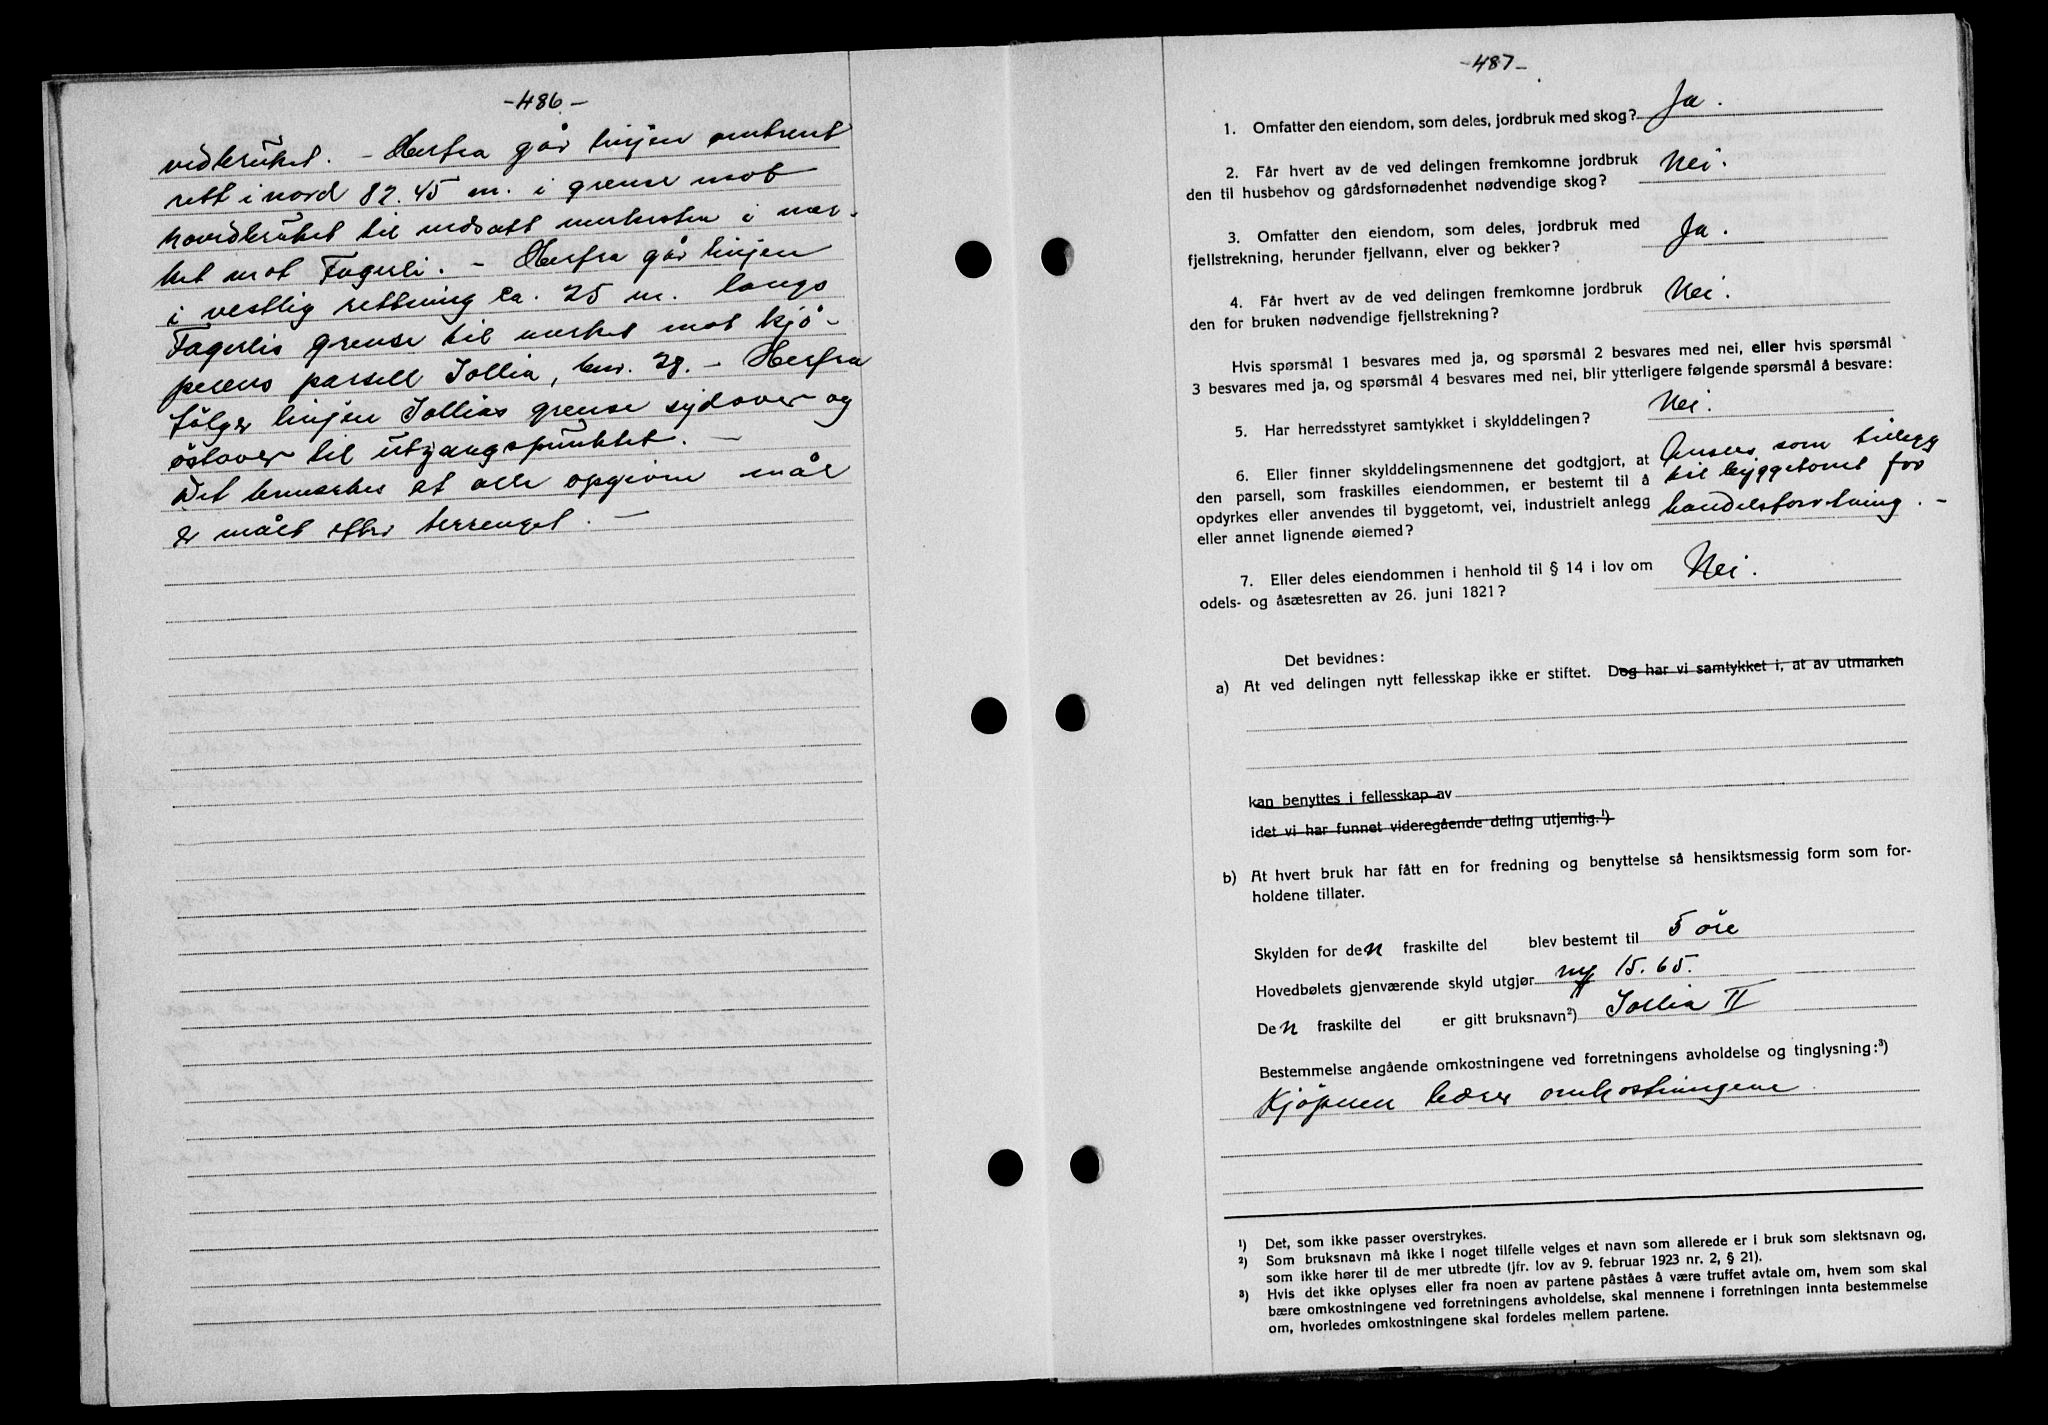 -486-
vedbruket. - Herfra går linjen omtrent
rett i nord 87.45 m. i grense mot
hovedbruket til nedsatt merkesten i mar-
ket mot Fagerli. - Herfra går linjen
i vestlig rettning ca. 25 m. langs
Fagerlis grense til merket mot kjö-
perens parsell Sollia, bnr. 28. - Herfra
fölger linjen Sollias grense sydover og
östover til utgangspunktet. -
Det bemerkes at alle opgivne mål
er målt efter terrenget. -
-487-
1. Omfatter den eiendom, som deles, jordbruk med skog? Ja.
2. Får hvert av de ved delingen fremkomne jordbruk
den til husbehov og gårdsfornødenhet nødvendige skog? Nei.
3. Omfatter den eiendom, som deles, jordbruk med
fjellstrekning, herunder fjellvann, elver og bekker? Ja.
4. Får hvert av de ved delingen fremkomne jordbruk
den for bruken nødvendige fjellstrekning? Nei.
Hvis spørsmål 1 besvares med ja, og spørsmål 2 besvares med nei, eller hvis spørsmål
3 besvares med ja, og spørsmål 4 besvares med nei, blir ytterligere følgende spørsmål å besvare:
5. Har herredsstyret samtykket i skylddelingen? Nei.
6. Eller finner skylddelingsmennene det godtgjort, at
den parsell, som fraskilles eiendommen, er bestemt til å
opdyrkes eller anvendes til byggetomt, vei, industrielt anlegg
eller annet lignende øiemed?
Ansees som tillegg
til byggetomt for
handelsforretning. -
7. Eller deles eiendommen i henhold til § 14 i lov om
odels- og åsætesretten av 26. juni 1821? Nei.
Det bevidnes:
a) At ved delingen nytt fellesskap ikke er stiftet. Dog har vi samtykket i, at av utmarken
kan benyttes i fellesskap av
idet vi har funnet videregående deling utjenlig.¹)
b) At hvert bruk har fått en for fredning og benyttelse så hensiktsmessig form som for-
holdene tillater.
Skylden for den fraskilte del blev bestemt til 5 öre
Hovedbølets gjenværende skyld utgjør 15.65.
Den fraskilte del er gitt bruksnavn²) Sollia II
Bestemmelse angående omkostningene ved forretningens avholdelse og tinglysning:³)
Kjöperen bærer omkostningene.
¹) Det, som ikke passer overstrykes.
²) Som bruksnavn må ikke i noget tilfelle velges et navn som allerede er i bruk som slektsnavn og,
som ikke hører til de mer utbredte (jfr. lov av 9. februar 1923 nr. 2, § 21).
³) Hvis det ikke oplyses eller fra noen av partene påståes å være truffet avtale om, hvem som skal
bære omkostningene ved forretningens avholdelse, skal mennene i forretningen innta bestemmelse
om, hvorledes omkostningene skal fordeles mellem partene.